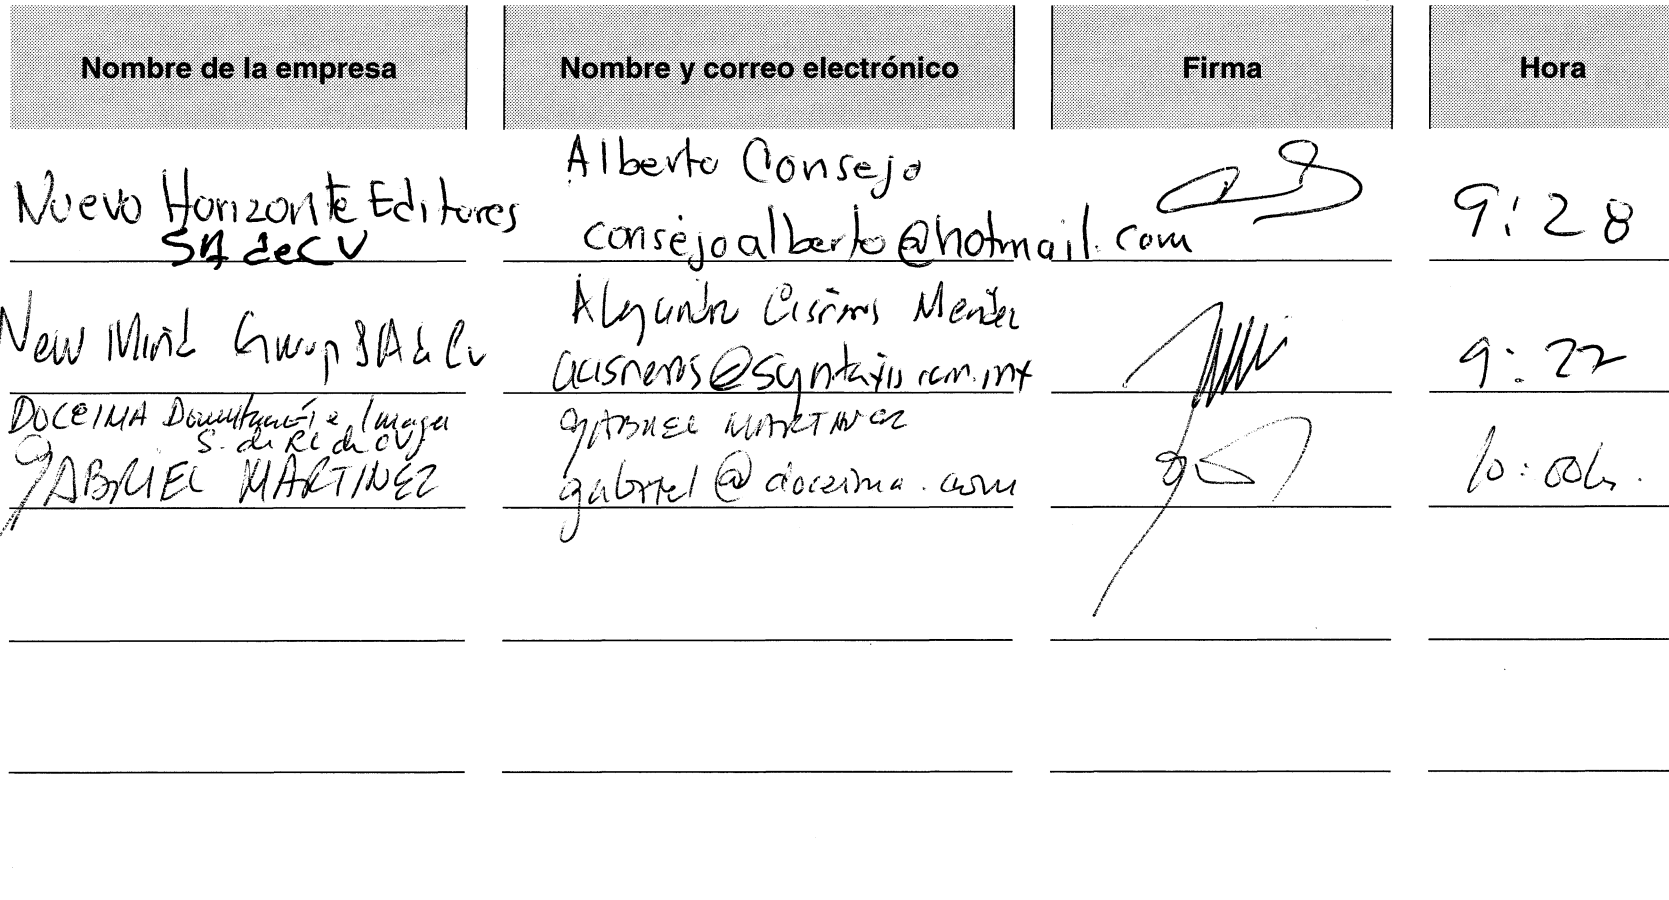 Nombre de la empresa
Nombre y correo electrónico
Firma
Hora
Nuevo Horizonte Editores
SA de CV
Alberto Consejo
consejoalberto@hotmail.com
9:28
New Mind Group SA de Cv
Alejandro Cisneros Mendez
acisneros@syntaxis.com.mx
9:22
DOCEIMA Documentación e Imagen
S. de RL de CV
GABRIEL MARTINEZ
GABRIEL MARTINEZ
gabriel@doceima.com
10:00h.